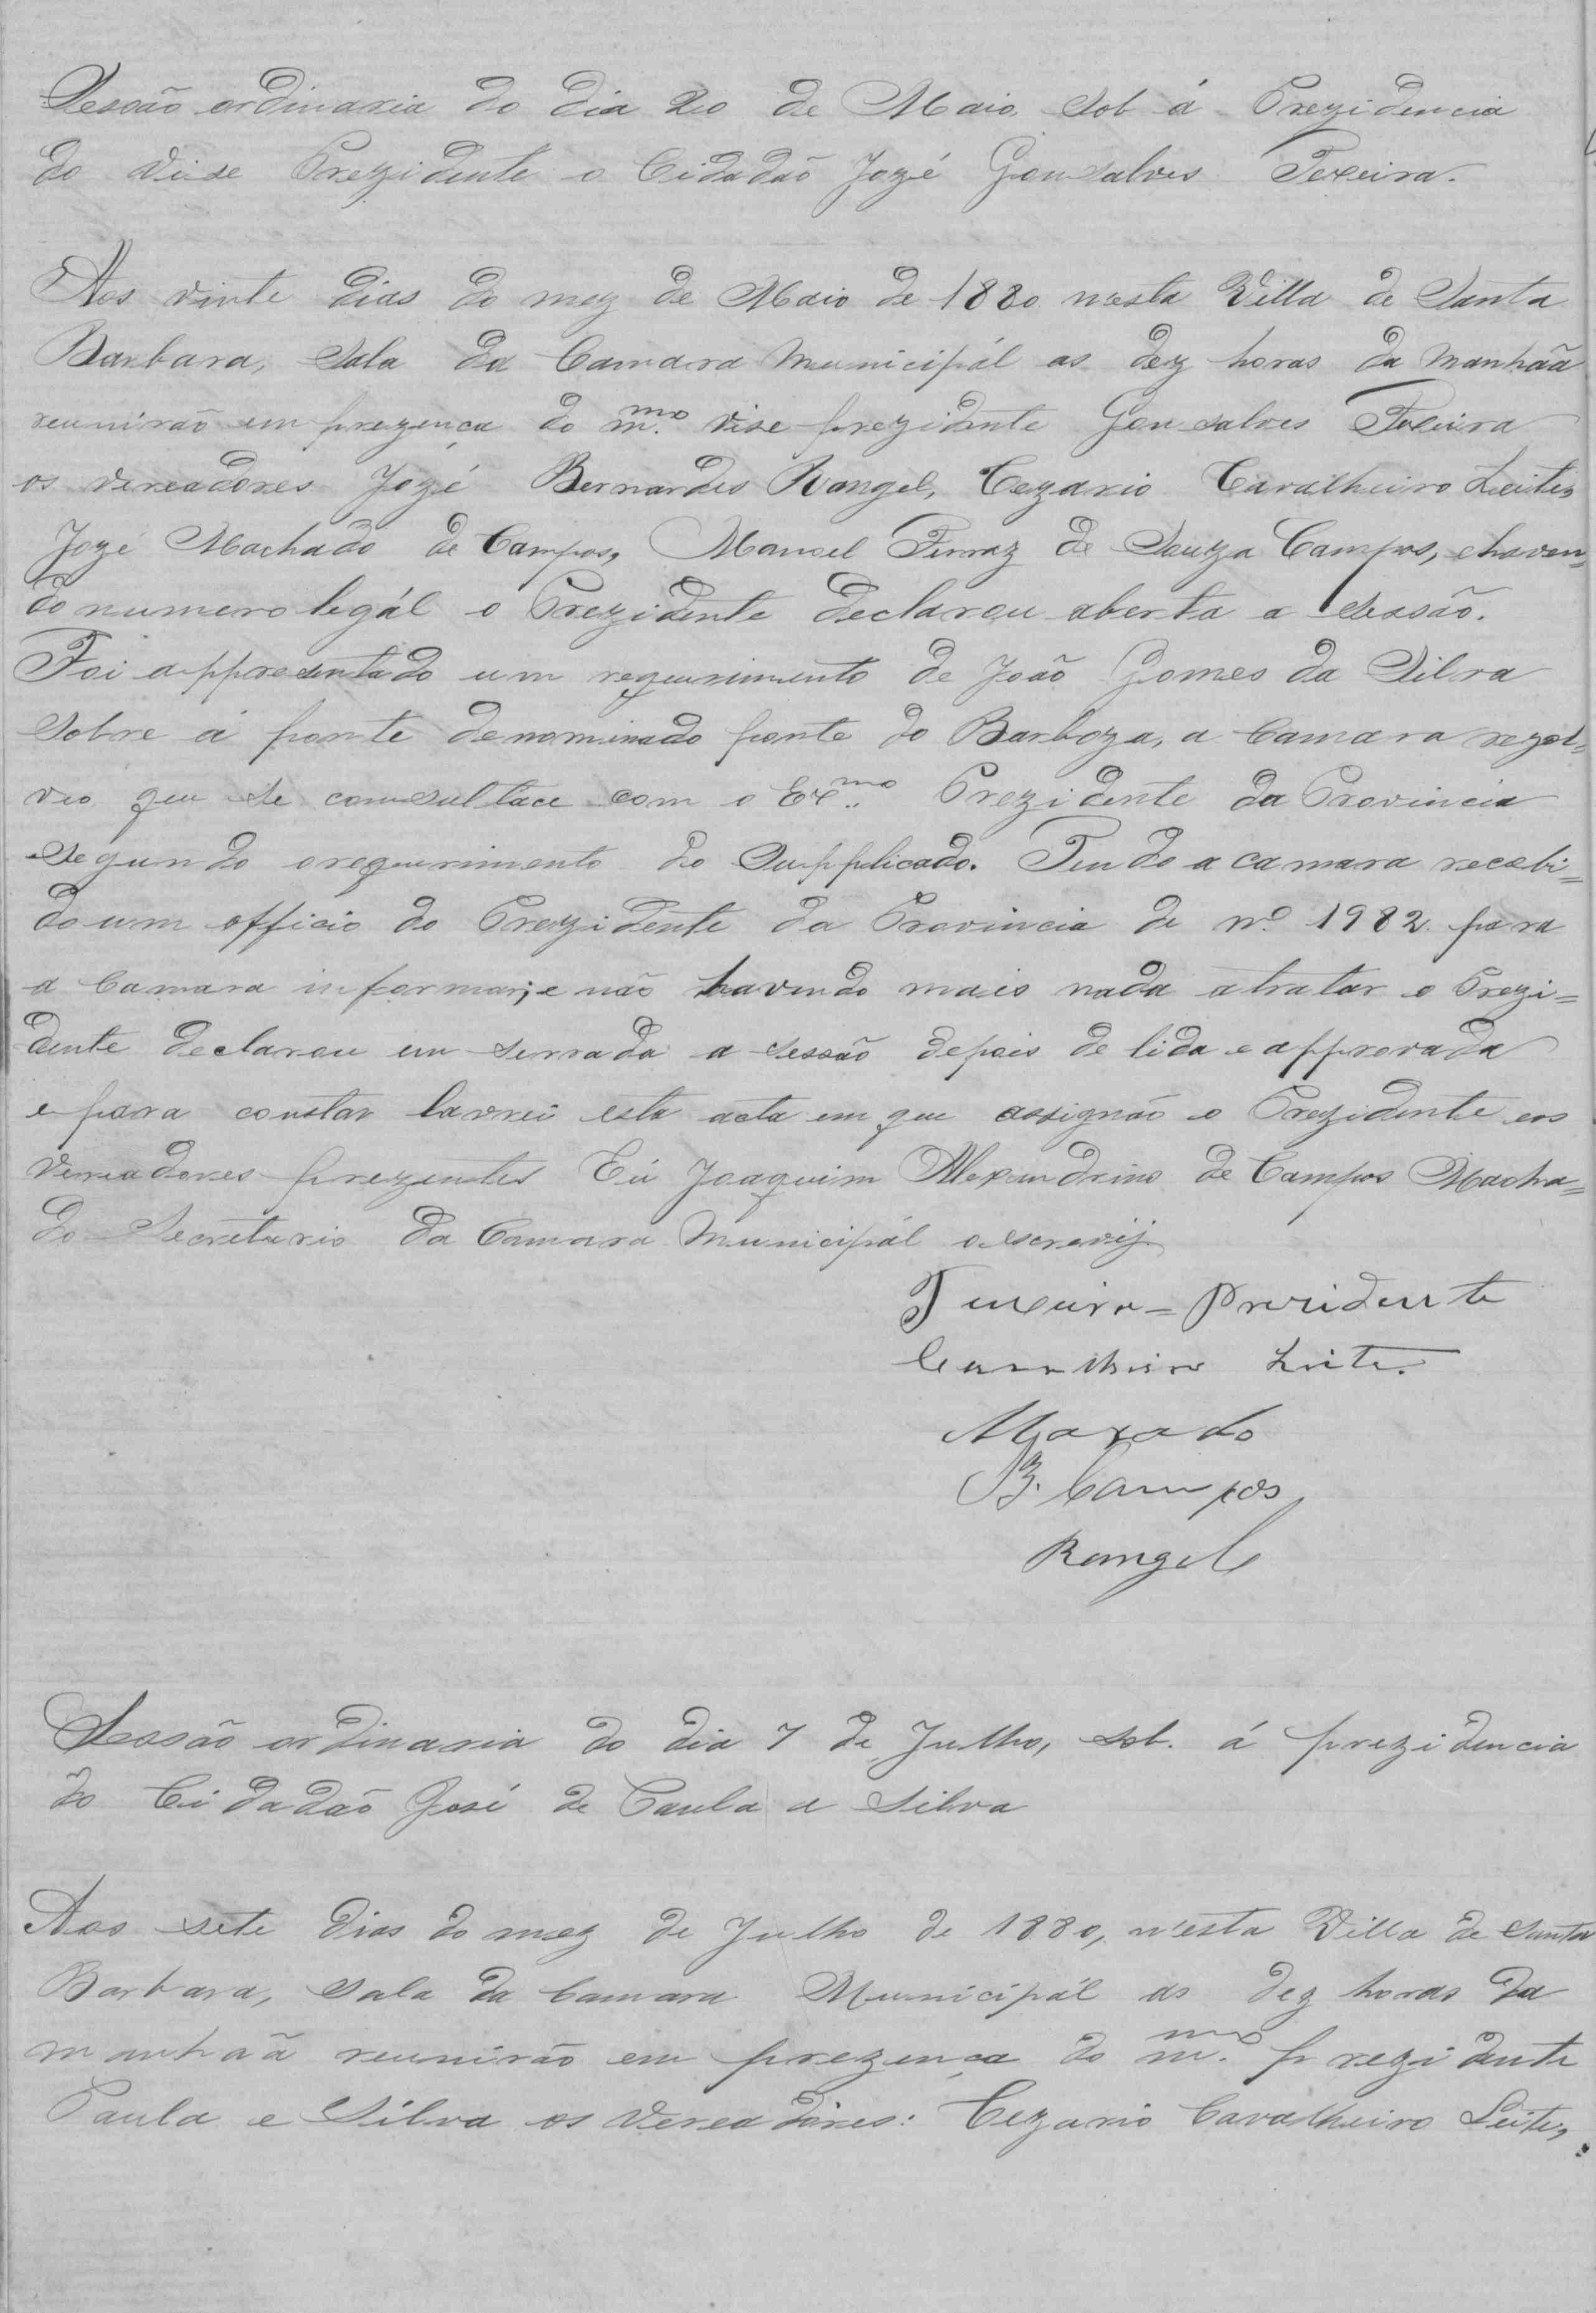 Sessão ordinaria do dia 20 de Maio, sob á Prezidencia
do Vise Prezidente o Cidadão Jozé Gonsalves Texeira.
Aos vinte dias do mez de Maio de 1880 nesta Villa de Santa
Barbara, Sala da Camara Municipál as dez horas da manhãa
reunirão em prezença do m.mo vise prezidente Gonsalves Texeira
os vereadores Jozé Bernardes Rangel, Cezario Cavalheiro Leite,
Joze Machado de Campos, Manoel Ferraz de Souza Campos, e haven=
do numero legál o Prezidente declarou aberta a sessão.
Foi appresentado um requerimento de João Gomes da Silva
sobre á ponte denominado ponte do Barboza, a Camara rezol=
veo que se consultace com o Ex.mo Prezidente da Provincia
segundo o requerimento do Supplicado. Tendo a camara recebi=
do um officio do Prezidente da Provincia de nº 1982 para
a Camara informar; e não havendo mais nada a tratar o Prezi=
dente declarou em serrada a sessão depois de lida e approvada
e para constar lavrei esta acta em que assignão o Prezidente e os
Vereadores prezentes Eú Joaquim Alexandrino de Campos Macha=
do Secretario da Camara Municipál o screvij
Teixeira = Prezidente
Cavalheiro Leite.
Maxado
B. Campos
Rangel
Sessão ordinaria do dia 7 de Julho, sob. á prezidencia
do Cidadão José de Paula e Silva
Aos sete dias do mez de Julho de 1880, n'esta Villa de Santa
Barbara, Sala da Camara Municipál as dez horas da
manhãã reunirão em prezença do m.mo prezidente
Paula e Silva os Vereadores: Cezario Cavalheiro Leite,